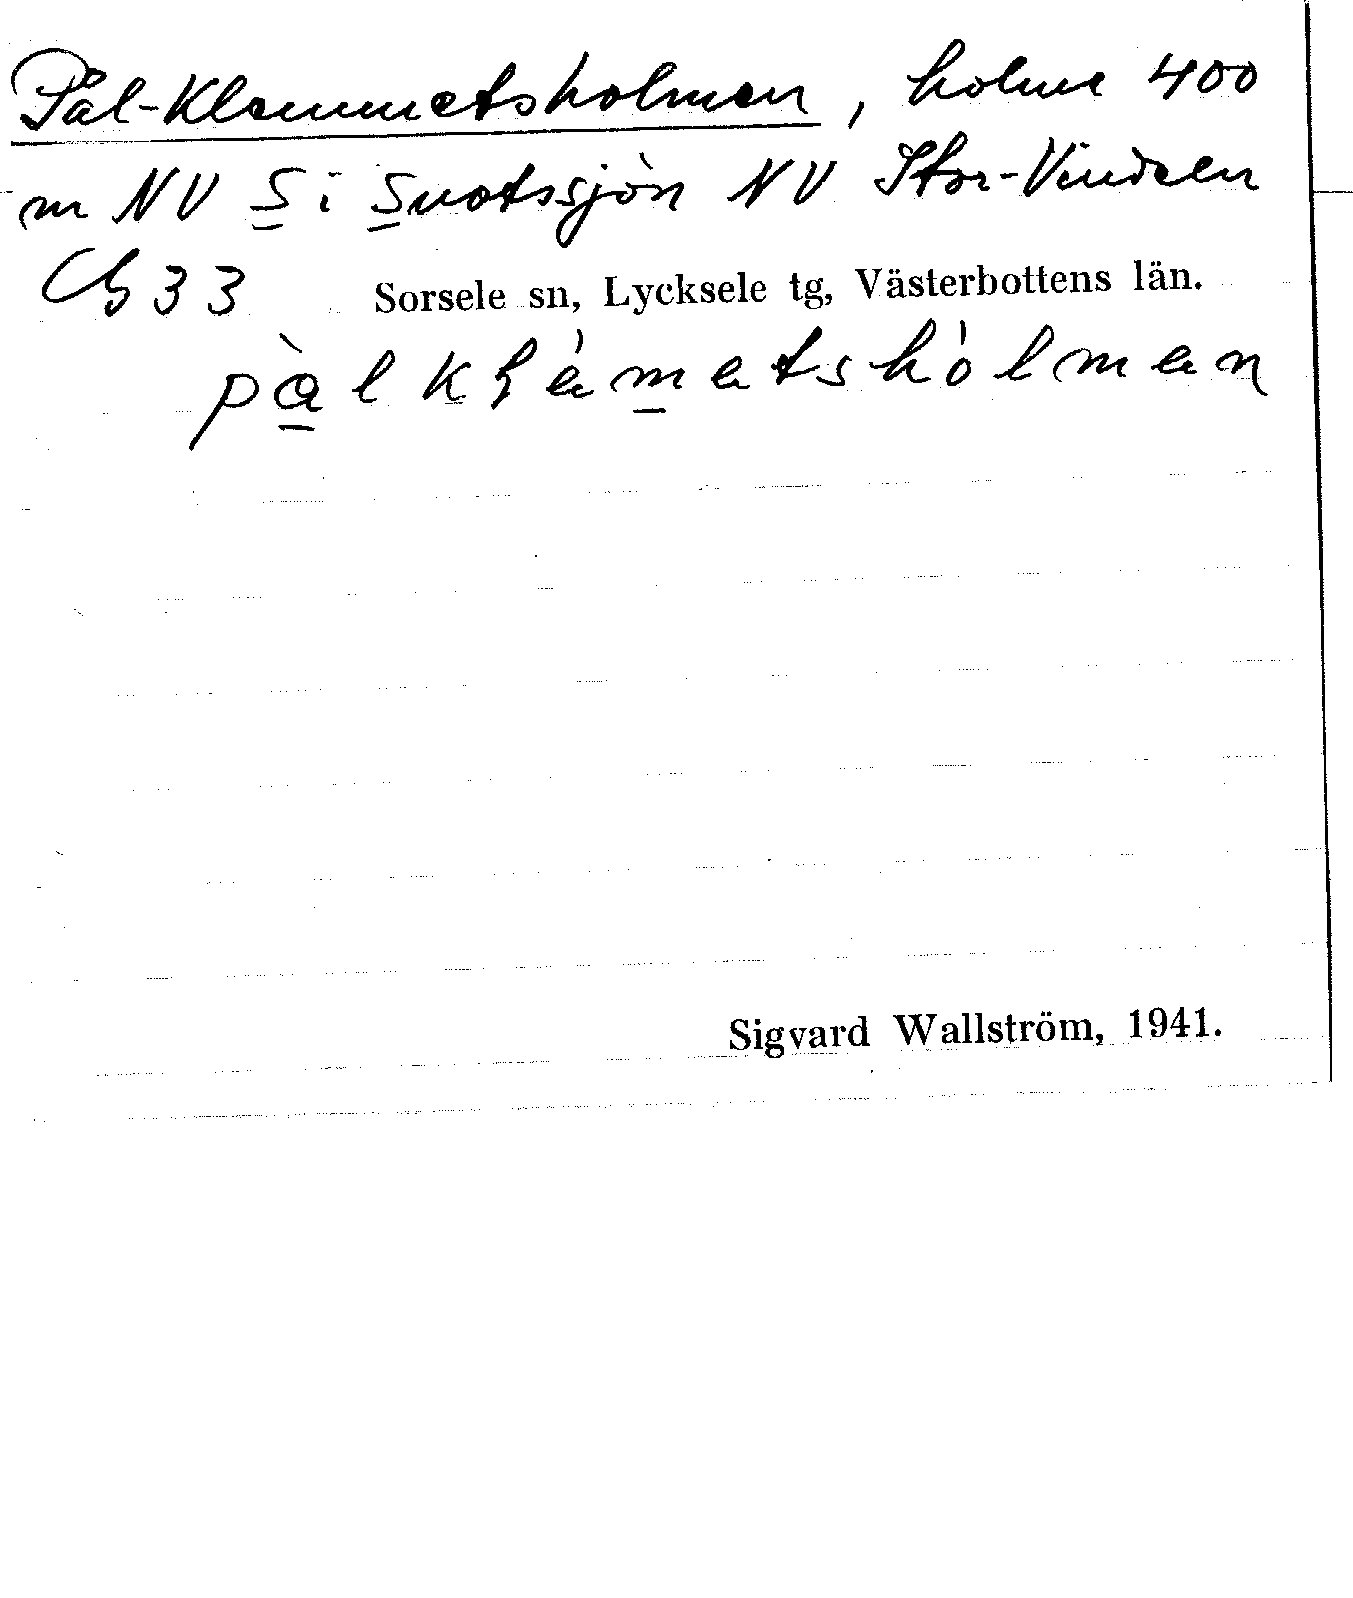 Pål-Klemmetsholmen, holme 400
m NV S i Snotssjön NV Stor-Vindeln
33 Sorsele sn, Lycksele tg, Västerbottens län.
Sigvard Wallström, 1941.